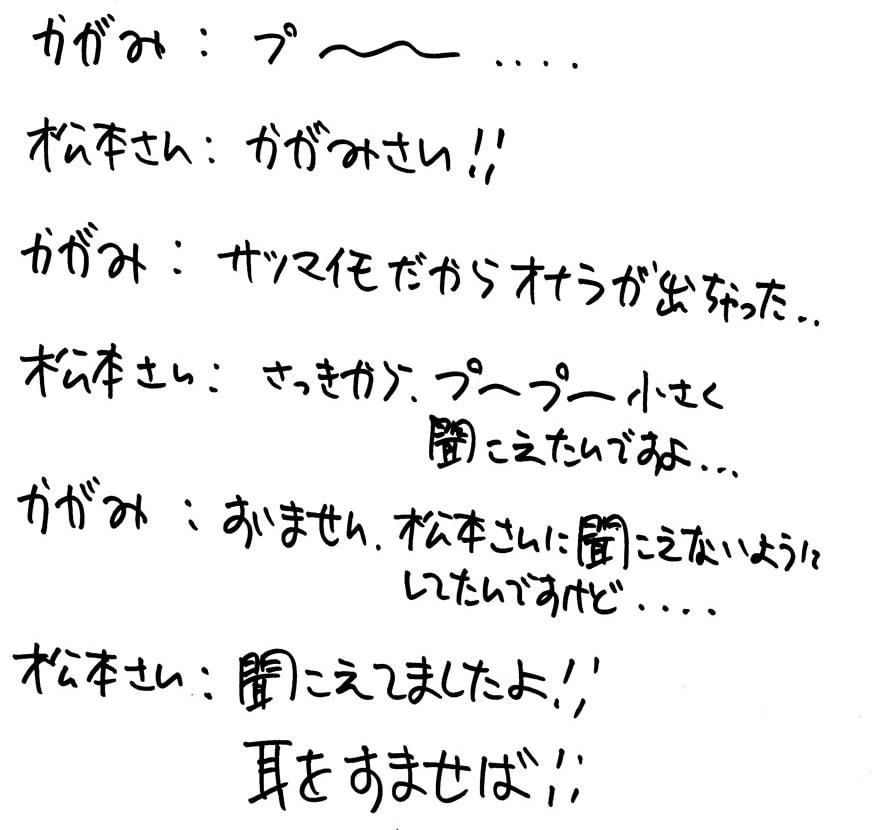 かがみ：プ〜〜....
松本さん：かがみさん!!
かがみ：サツマイモだからオナラが出ちゃった..
松本さん：さっきから、プープー小さく
聞こえたんですよ...
かがみ：すいません、松本さんに聞こえないように
してたんですけど....
松本さん：聞こえてましたよ!!
耳をすませば!!